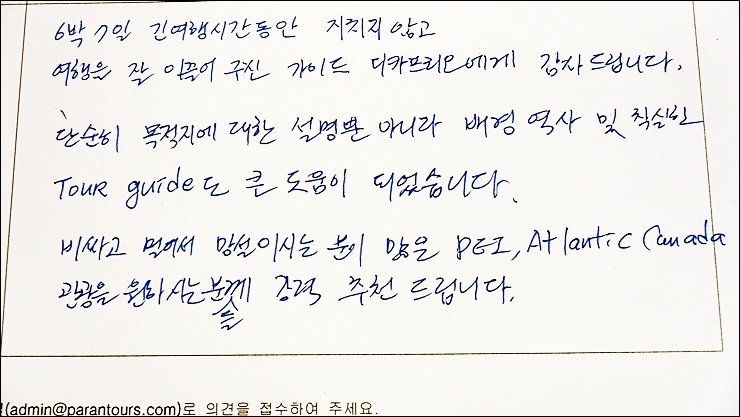 6박 7일 긴여행시간동안 지치지 않고
여행을 잘 이끌어 주신 가이드 디카프리오에게 감사드립니다.
단순히 목적지에 대한 설명뿐 아니라 배경 역사 및 착실한
Tour guide도 큰 도움이 되었습니다.
비싸고 멀어서 망설이시는 분이 많은 PEI, Atlantic Canada
관광을 원하시는분께 강력 추천 드립니다.
들
(admin@parantours.com)로 의견을 접수하여 주세요.